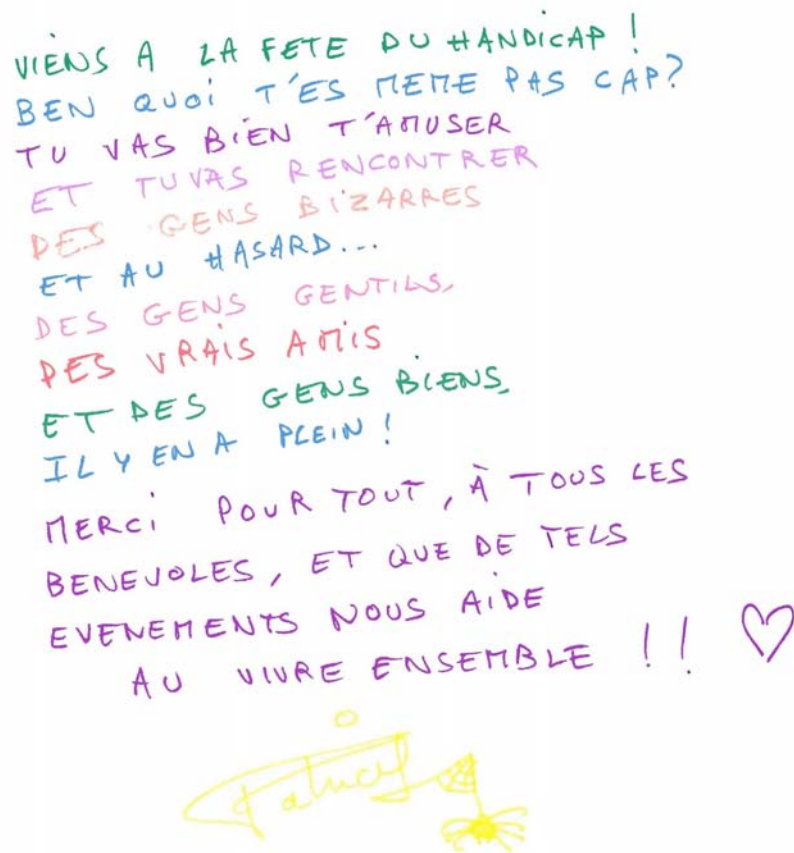 VIENS A LA FETE DU HANDICAP !
BEN QUOI T'ES MEME PAS CAP?
TU VAS BIEN T'AMUSER
ET TU VAS RENCONTRER
DES GENS BIZARRES
ET AU HASARD...
DES GENS GENTILS,
DES VRAIS AMIS
ET DES GENS BIENS,
IL Y EN A PLEIN !
MERCI POUR TOUT, À TOUS LES
BENEVOLES, ET QUE DE TELS
EVENEMENTS NOUS AIDE
AU VIVRE ENSEMBLE !! ♡